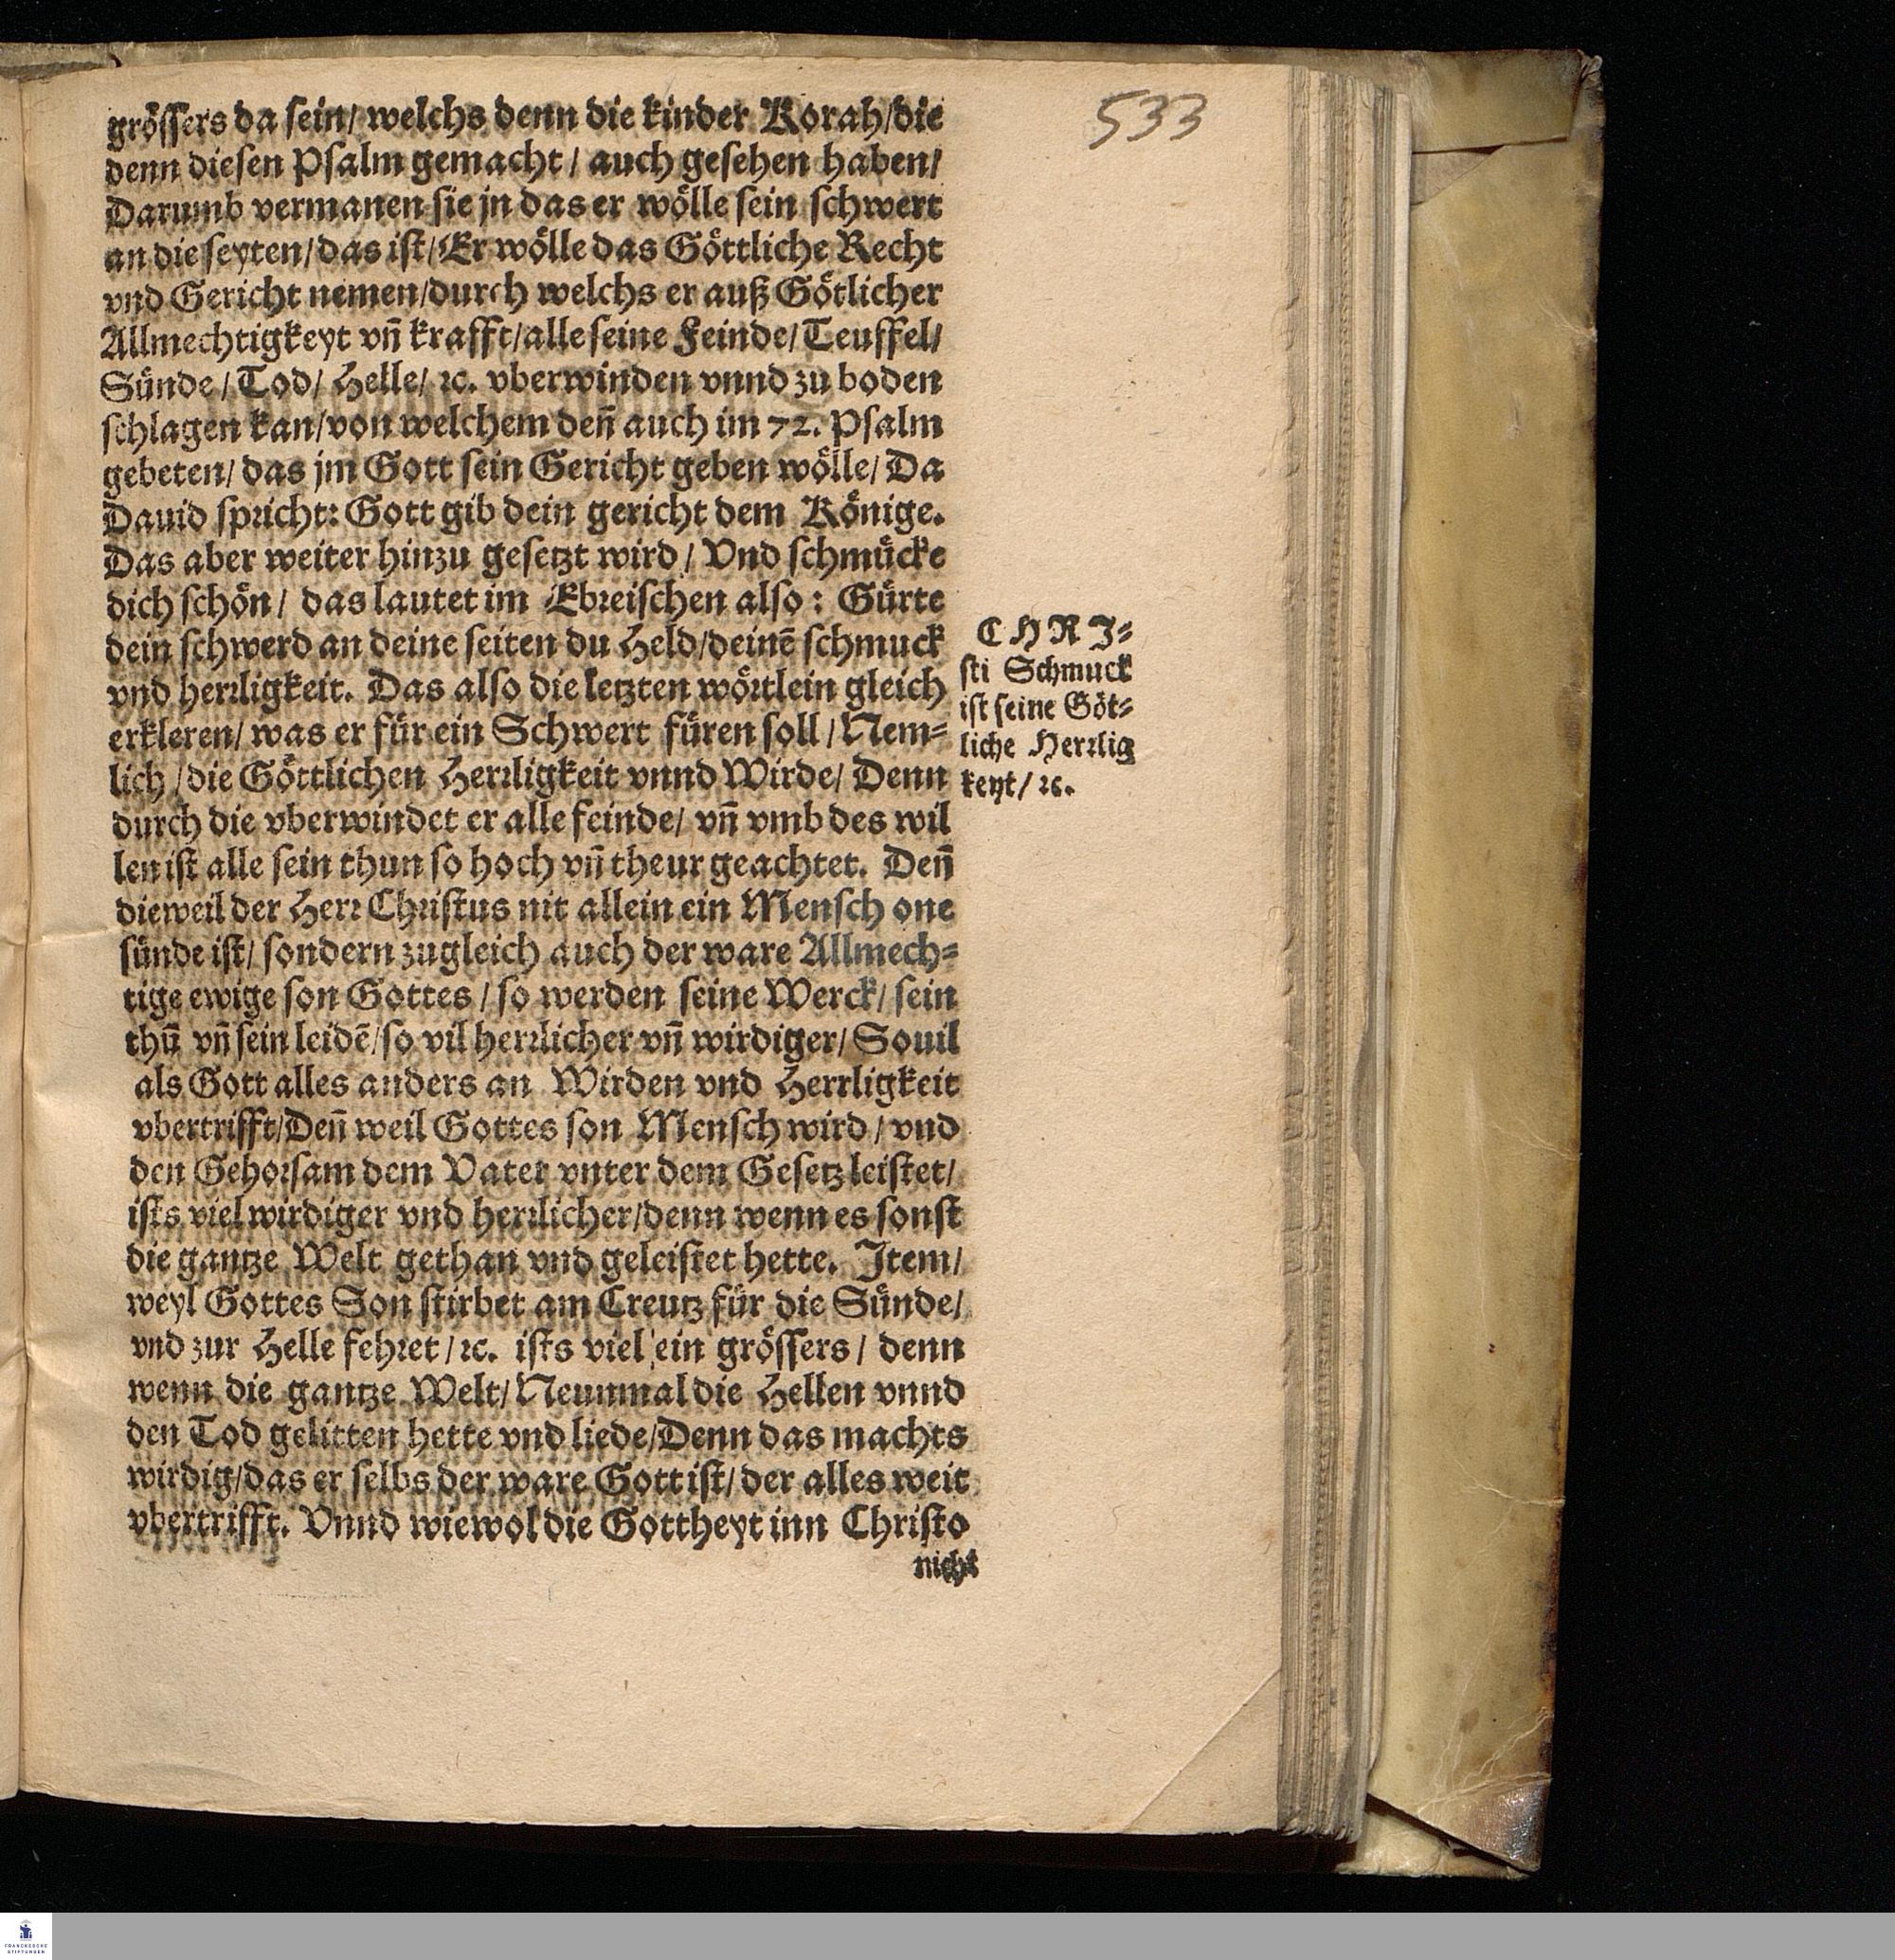 533
grössers da sein/ welchs denn die kinder Korah/die
denn diesen Psalm gemacht / auch gesehen haben/
Darumb vermanen sie jn das er wölle sein schwert
an die seyten/das ist/Er wölle das Göttliche Recht
vnd Gericht nemen/durch welchs er auß Götlicher
Allmechtigkeyt vñ krafft/alle seine Feinde/Teuffel/
Sünde/Tod/ Helle/ ꝛc. vberwinden vnnd zu boden
schlagen kan/von welchem deñ auch im 72. Psalm
gebeten/ das jm Gott sein Gericht geben wölle/ Da
Dauid spricht: Gott gib dein gericht dem Könige.
Das aber weiter hinzu gesetzt wird / Vnd schmücke
dich schön/ das lautet im Ebreischen also: Gürte
dein schwerd an deine seiten du Held/deinē schmuck
vnd herrligkeit. Das also die letzten wörtlein gleich
erkleren/ was er für ein Schwert füren soll / Nem⸗
lich /die Göttlichen Herrligkeit vnnd Wirde/ Denn
durch die vberwindet er alle feinde/ vñ vmb des wil
len ist alle sein thun so hoch vñ theur geachtet. Deñ
dieweil der Herr Christus nit allein ein Mensch one
sünde ist/ sondern zugleich auch der ware Allmech⸗
tige ewige son Gottes / so werden seine Werck/ sein
thū vñ sein leidē/so vil herrlicher vñ wirdiger/ Souil
als Gott alles anders an Wirden vnd Herrligkeit
vbertrifft/Deñ weil Gottes son Mensch wird / vnd
den Gehorsam dem Vater vnter dem Gesetz leistet/
ists viel wirdiger vnd herrlicher/denn wenn es sonst
die gantze Welt gethan vnd geleistet hette. Item/
weyl Gottes Son stirbet am Creutz für die Sünde/
vnd zur Helle fehret / ꝛc. ists viel ein grössers / denn
wenn die gantze Welt/ Neunmal die Hellen vnnd
den Tod gelitten hette vnd liede/Denn das machts
wirdig/das er selbs der ware Gott ist/ der alles weit
vbertrifft. Vnnd wiewol die Gottheyt inn Christo
nicht
CHRI⸗
sti Schmuck
ist seine Göt⸗
liche Herrlig
keyt/ ꝛc.
FRANCKESCHE
STIFTUNGEN